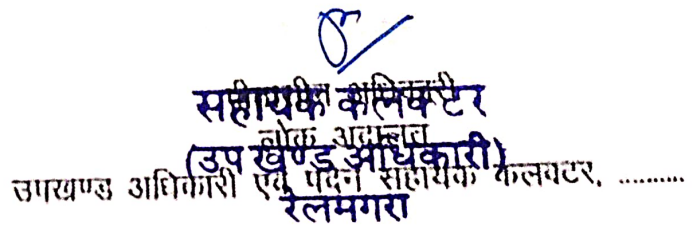 सहायक कलक्टर
लोक अदालत
(उप खण्ड अधिकारी)
उपखण्ड अधिकारी एवं पदेन सहायक कलक्टर, ..........
रेलमगरा